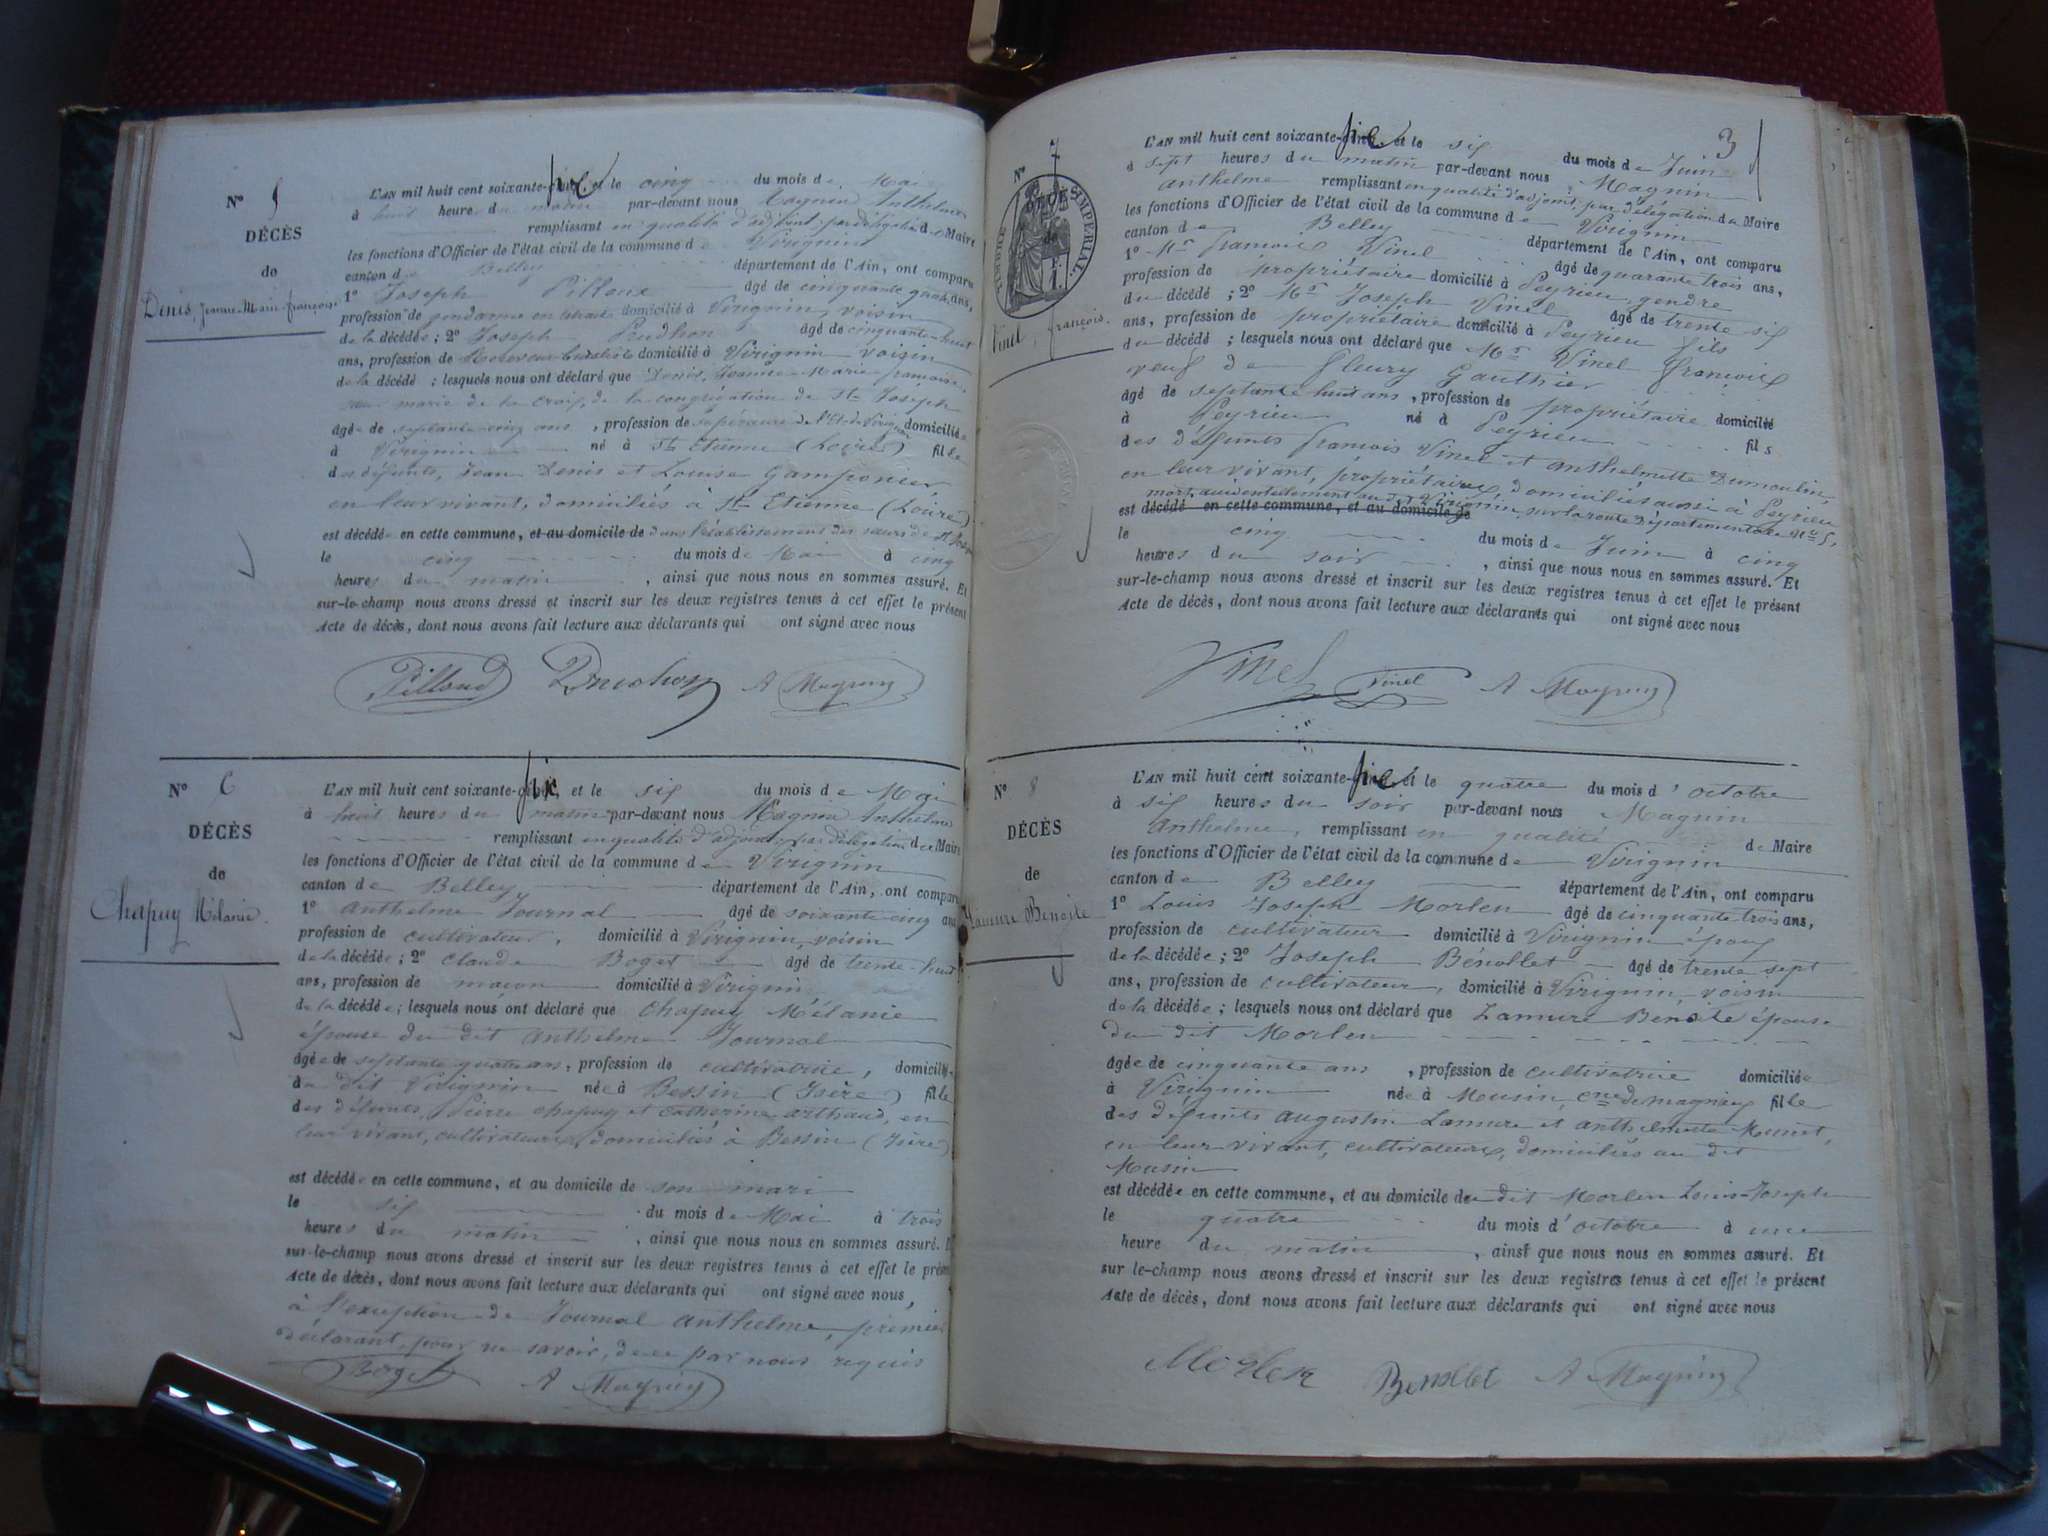 N° 5
DÉCÈS
de
Denis, Jeanne-Marie-françoise.
L'AN mil huit cent soixante-six et le cinq du mois de Mai
à huit heures du matin par-devant nous Magnin Anthelme
remplissant en qualité d'adjoint, par délégation du Maire
les fonctions d'Officier de l'état civil de la commune de Virignin
canton de Belley département de l'Ain, ont comparu
1° Joseph Pilloud âgé de cinquante quatre ans,
profession de gendarme en retraite domicilié à Virignin, voisin
de la décédée ; 2° Joseph Prudhon âgé de cinquante-huit
ans, profession de domicilié à Virignin voisin
de la décédé ; lesquels nous ont déclaré que Denis, Jeanne-Marie-françoise,
sœur marie de la croix, de la congrégation de St Joseph
âgée de septante cinq ans, profession de supérieure de domiciliée
à Virignin né à St Etienne (Loire) fille
des défunts, Jean Denis et Louise
en leur vivant, domiciliés à St Etienne (Loire)
est décédée en cette commune, et au domicile de dans l'établissement des sœurs de St Joseph
le cinq du mois de Mai à cinq
heures du matin, ainsi que nous nous en sommes assuré. Et
sur-le-champ nous avons dressé et inscrit sur les deux registres tenus à cet effet le présent
Acte de décès, dont nous avons fait lecture aux déclarants qui ont signé avec nous
Pilloud Prudhon A Magnin
N° 6
DÉCÈS
de
Chapuy Mélanie.
L'AN mil huit cent soixante-six, et le six du mois de Mai
à huit heures du matin par-devant nous Magnin Anthelme
remplissant en qualité d'adjoint, par délégation du Maire
les fonctions d'Officier de l'état civil de la commune de Virignin
canton de Belley département de l'Ain, ont comparu
1° Anthelme Journal âgé de soixante cinq ans
profession de cultivateur, domicilié à Virignin, voisin
de la décédée ; 2° Claude Boget âgé de trente-huit
ans, profession de maçon domicilié à Virignin
de la décédée ; lesquels nous ont déclaré que Chapuy Mélanie
épouse du dit Anthelme Journal
âgée de septante quatre ans, profession de cultivatrice, domiciliée
du dit Virignin née à Bessin (Isère) fille
des défunts, Pierre Chapuy et Catherine Arthaud, en
leur vivant, cultivateurs, domiciliés à Bessin (Isère)
est décédée en cette commune, et au domicile de son mari
le six du mois de Mai à trois
heures du matin, ainsi que nous nous en sommes assuré. E
sur-le-champ nous avons dressé et inscrit sur les deux registres tenus à cet effet le présen
Acte de décès, dont nous avons fait lecture aux déclarants qui ont signé avec nous,
à l'exception de Journal Anthelme, premier
déclarant, pour ne savoir, de ce par nous requis
Boget A Magnin
3
N° 7
TIMBRE IMPÉRIAL
Vinel françois.
L'AN mil huit cent soixante-six et le six du mois de Juin
à sept heures du matin par-devant nous, Magnin
Anthelme remplissant en qualité d'adjoint, par délégation du Maire
les fonctions d'Officier de l'état civil de la commune de Virignin
canton de Belley département de l'Ain, ont comparu
1° Mr françois Vinel âgé de quarante trois ans,
profession de propriétaire domicilié à Peyrieu, gendre
du décédé ; 2° Mr Joseph Vinel âgé de trente six
ans, profession de propriétaire domicilié à Peyrieu fils
du décédé ; lesquels nous ont déclaré que Mr Vinel françois
veuf de fleury Gauthier
âgé de septante huit ans, profession de propriétaire domicilié
à Peyrieu né à Peyrieu fils
des défunts françois Vinel et Anthelmette Dumoulin,
en leur vivant, propriétaires, domiciliés aussi à Peyrieu
mort accidentellement au dit Virignin, sur la route départementale N° 5,
est décédé en cette commune, et au domicile de
le cinq du mois de Juin à cinq
heures du soir, ainsi que nous nous en sommes assuré. Et
sur-le-champ nous avons dressé et inscrit sur les deux registres tenus à cet effet le présent
Acte de décès, dont nous avons fait lecture aux déclarants qui ont signé avec nous
Vinel Vinel A Magnin
N° 8
DÉCÈS
de
Lamure Benoîte
L'AN mil huit cent soixante-six et le quatre du mois d'octobre
à six heures du soir par-devant nous Magnin
Anthelme, remplissant en qualité de Maire
les fonctions d'Officier de l'état civil de la commune de Virignin
canton de Belley département de l'Ain, ont comparu
1° Louis Joseph Morlen âgé de cinquante trois ans,
profession de cultivateur domicilié à Virignin époux
de la décédée ; 2° Joseph Bénollet âgé de trente sept
ans, profession de cultivateur, domicilié à Virignin, voisin
de la décédée ; lesquels nous ont déclaré que Lamure Benoîte épouse
du dit Morlen
âgée de cinquante ans, profession de cultivatrice domiciliée
à Virignin née à Musin, cne de magnieu fille
des défunts Augustin Lamure et Anthelmette Munet,
en leur vivant, cultivateurs, domiciliés au dit
Musin
est décédée en cette commune, et au domicile du dit Morlen Louis-Joseph
le quatre du mois d'octobre à une
heure du matin, ainsi que nous nous en sommes assuré. Et
sur le-champ nous avons dressé et inscrit sur les deux registres tenus à cet effet le présent
Acte de décès, dont nous avons fait lecture aux déclarants qui ont signé avec nous
Morlen Benollet A Magnin